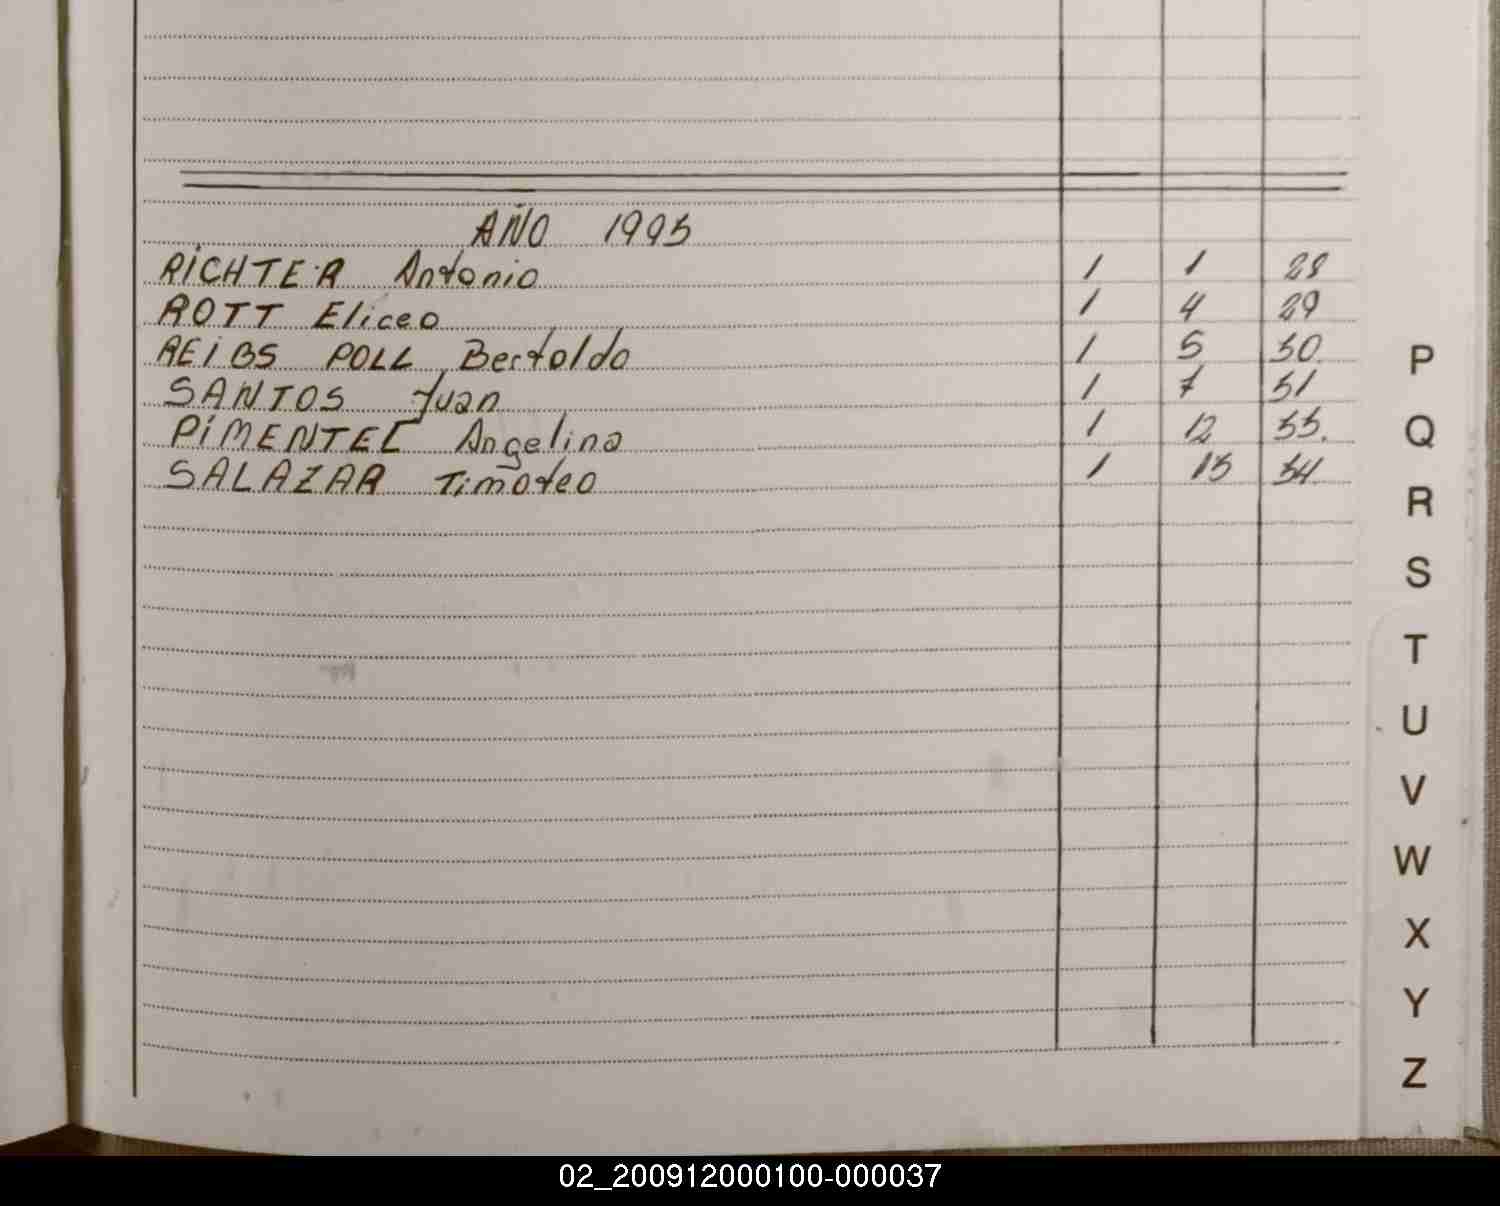 AÑO 1993
RICHTER Antonio 1 1 28
ROTT Eliceo 1 4 29
REIBS POLL Bertoldo 1 5 30
SANTOS Juan 1 7 31
PIMENTEL Angelina 1 12 33.
SALAZAR Timoteo 1 13 34
P
Q
R
S
T
U
V
W
X
Y
Z
02_200912000100-000037